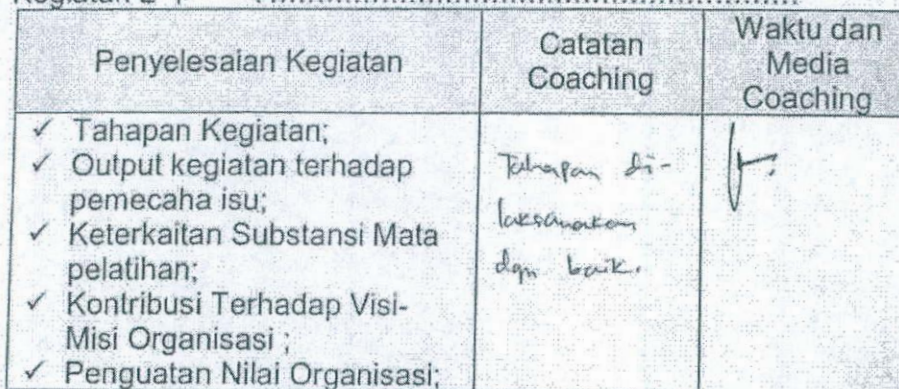 Kegiatan 2 :
Penyelesaian Kegiatan
Catatan
Coaching
Waktu dan
Media
Coaching
✓ Tahapan Kegiatan;
✓ Output kegiatan terhadap
pemecaha isu;
✓ Keterkaitan Substansi Mata
pelatihan;
✓ Kontribusi Terhadap Visi-
Misi Organisasi ;
✓ Penguatan Nilai Organisasi;
Tahapan di-
laksanakan
dgn baik.